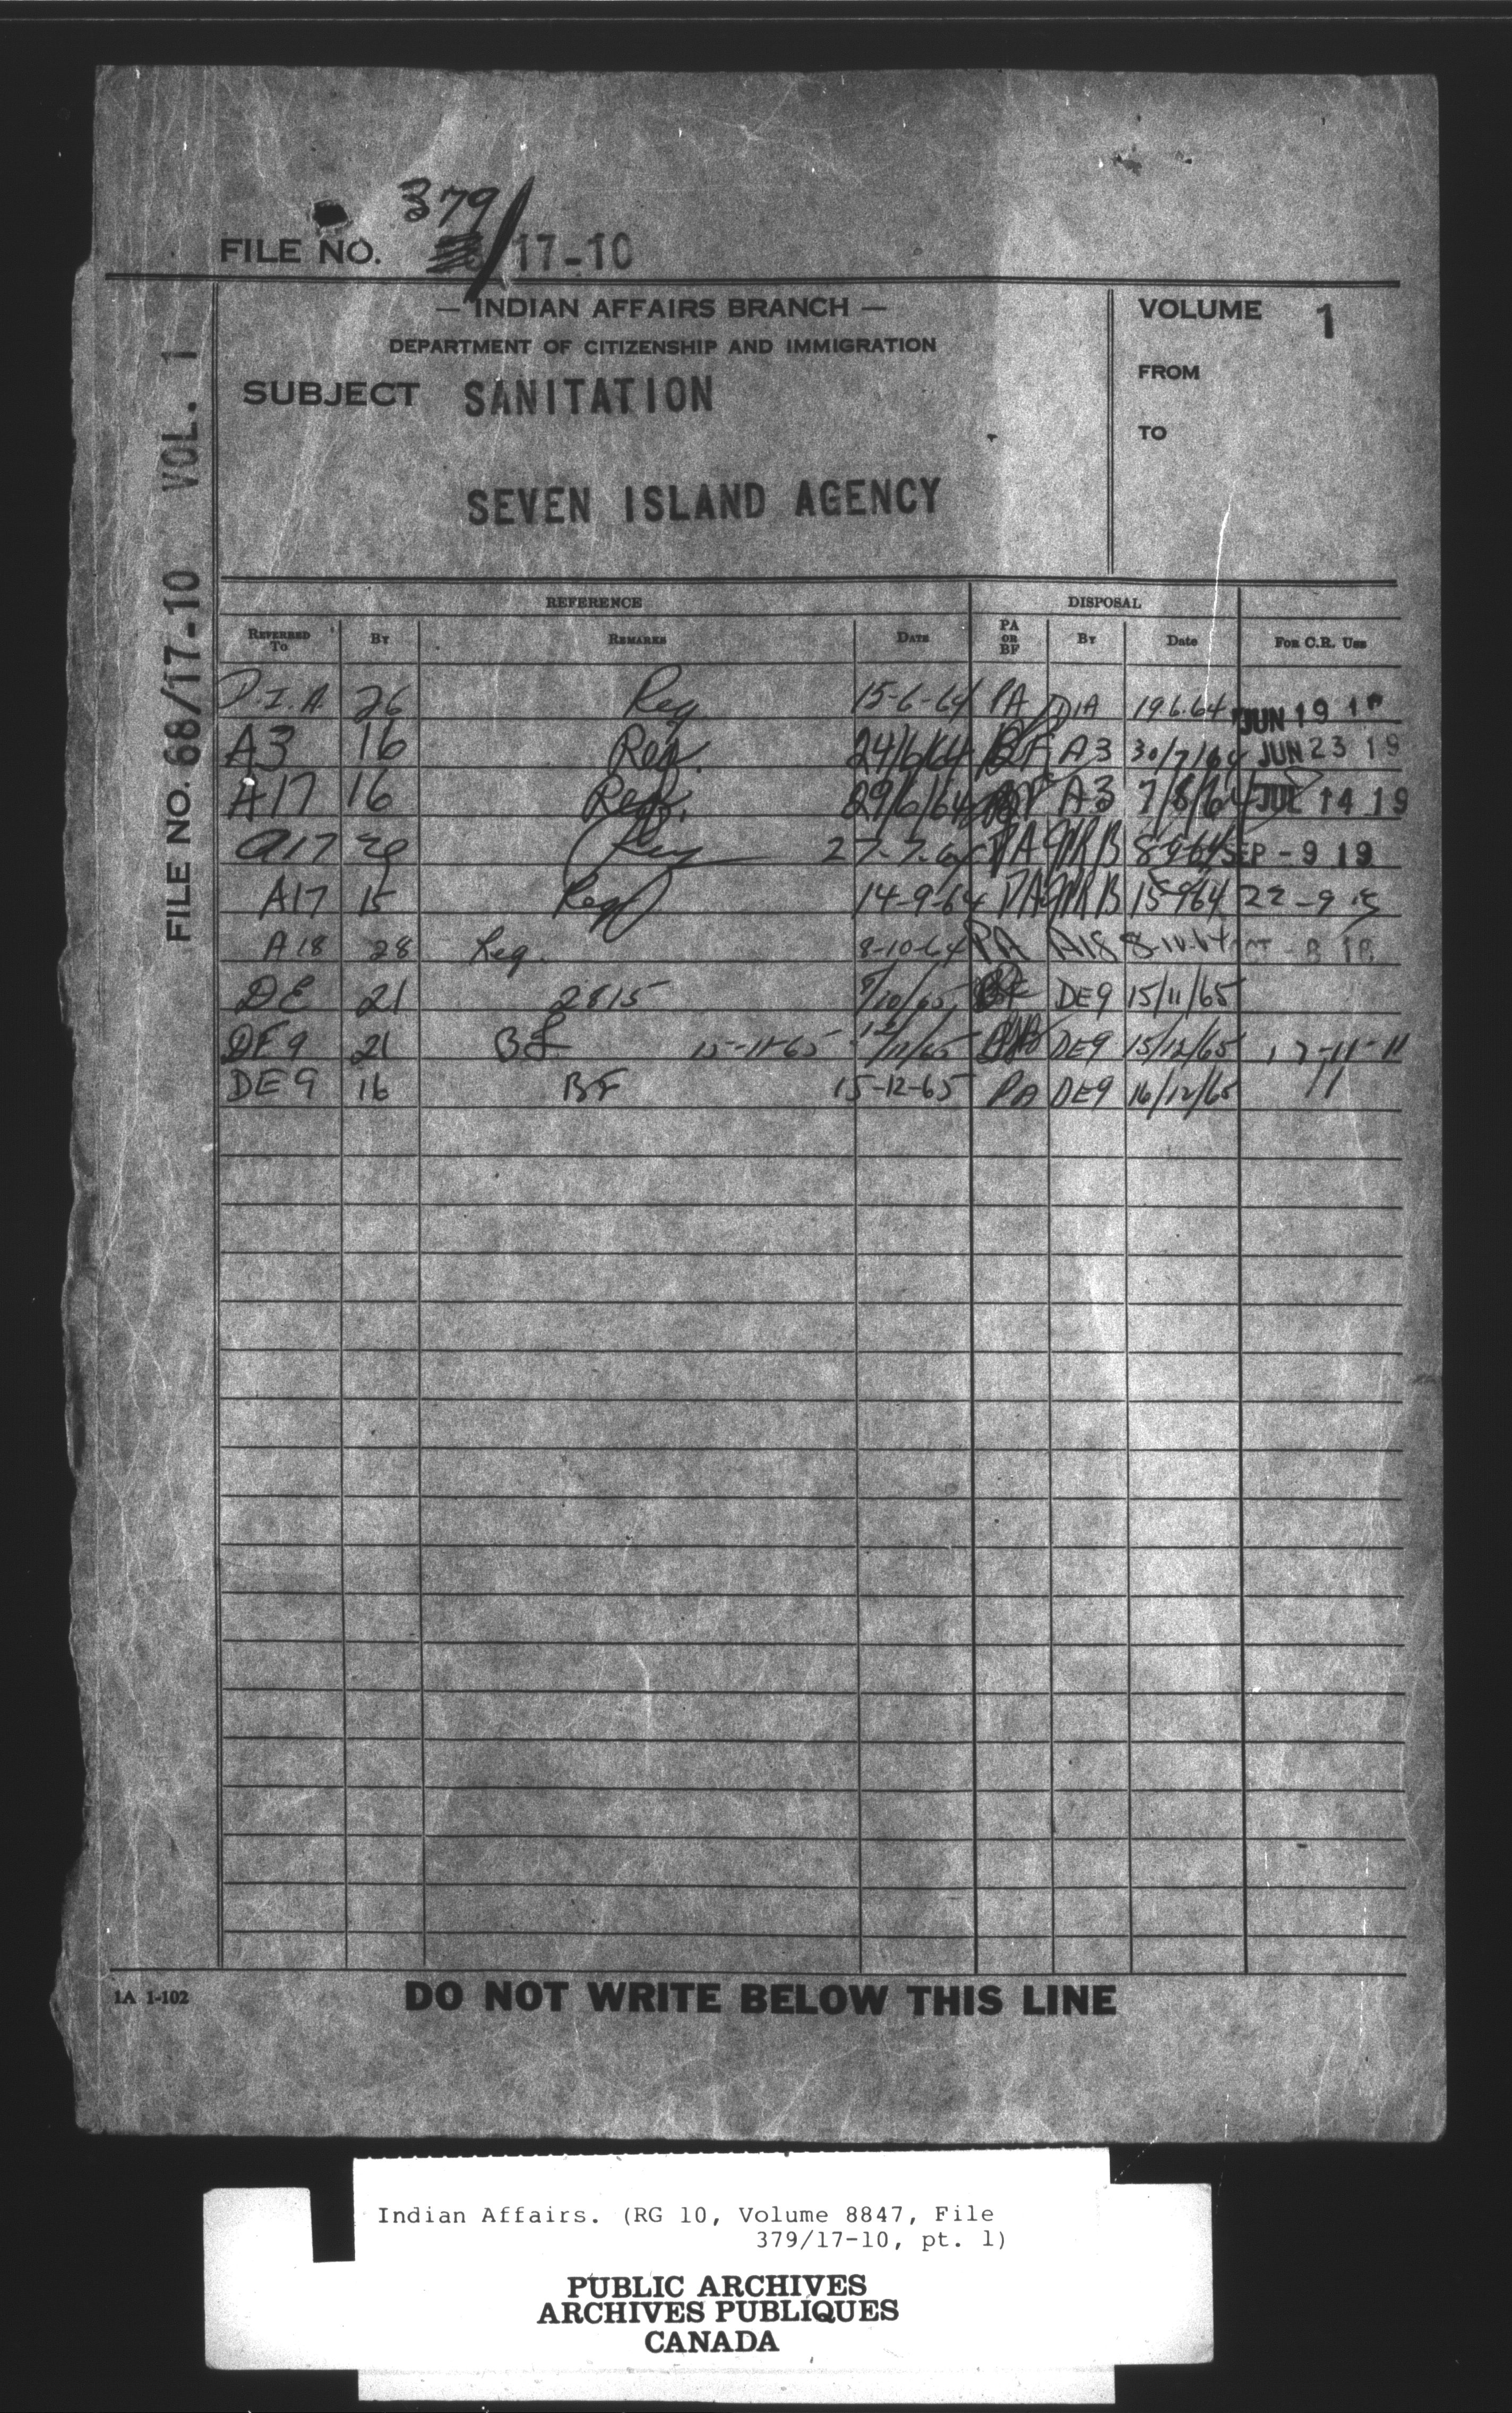 379/
FILE NO. 17-10
— INDIAN AFFAIRS BRANCH —
DEPARTMENT OF CITIZENSHIP AND IMMIGRATION
SUBJECT SANITATION
SEVEN ISLAND AGENCY
VOLUME 1
FROM
TO
FILE NO. 68/17-10 VOL. 1
REFERENCE DISPOSAL
REFERRED TO BY REMARKS DATE PA OR BF BY Date FOR C.R. USE
D.I.A. 26 Reg 15-6-64 PA DIA 19.6.64 JUN 19
A3 16 Reg. 24/6/64 BF A3 30/7/64 JUN 23 19
A17 16 Reg. 29/6/64 A3 7/8/64 JUL 14 19
A17 Reg 27-7-64 PA SEP - 9 19
A17 15 Reg 14-9-64 PA 15-9-64 22-9
A18 28 Reg. 8-10-64 PA A18 8-10-64 OCT - 8
DE 21 2815 /10/65 BF DE9 15/11/65
DE9 21 BF 15-11-65 /11/65 DE9 15/12/65
DE9 16 BF 15-12-65 PA DE9 16/12/65
1A 1-102
DO NOT WRITE BELOW THIS LINE
Indian Affairs. (RG 10, Volume 8847, File
379/17-10, pt. 1)
PUBLIC ARCHIVES
ARCHIVES PUBLIQUES
CANADA